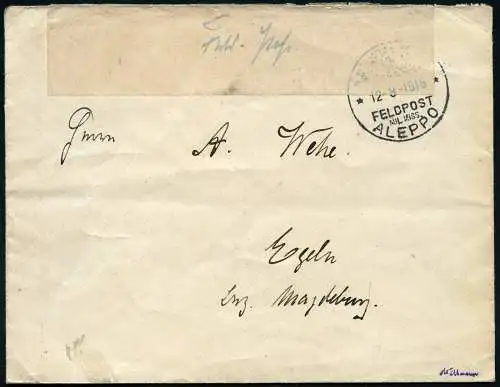 Feld-Post
12-8-1916
FELDPOST
MIL. MISS.
ALEPPO
Herrn
A. Wehe.
Egeln
Bez. Magdeburg.